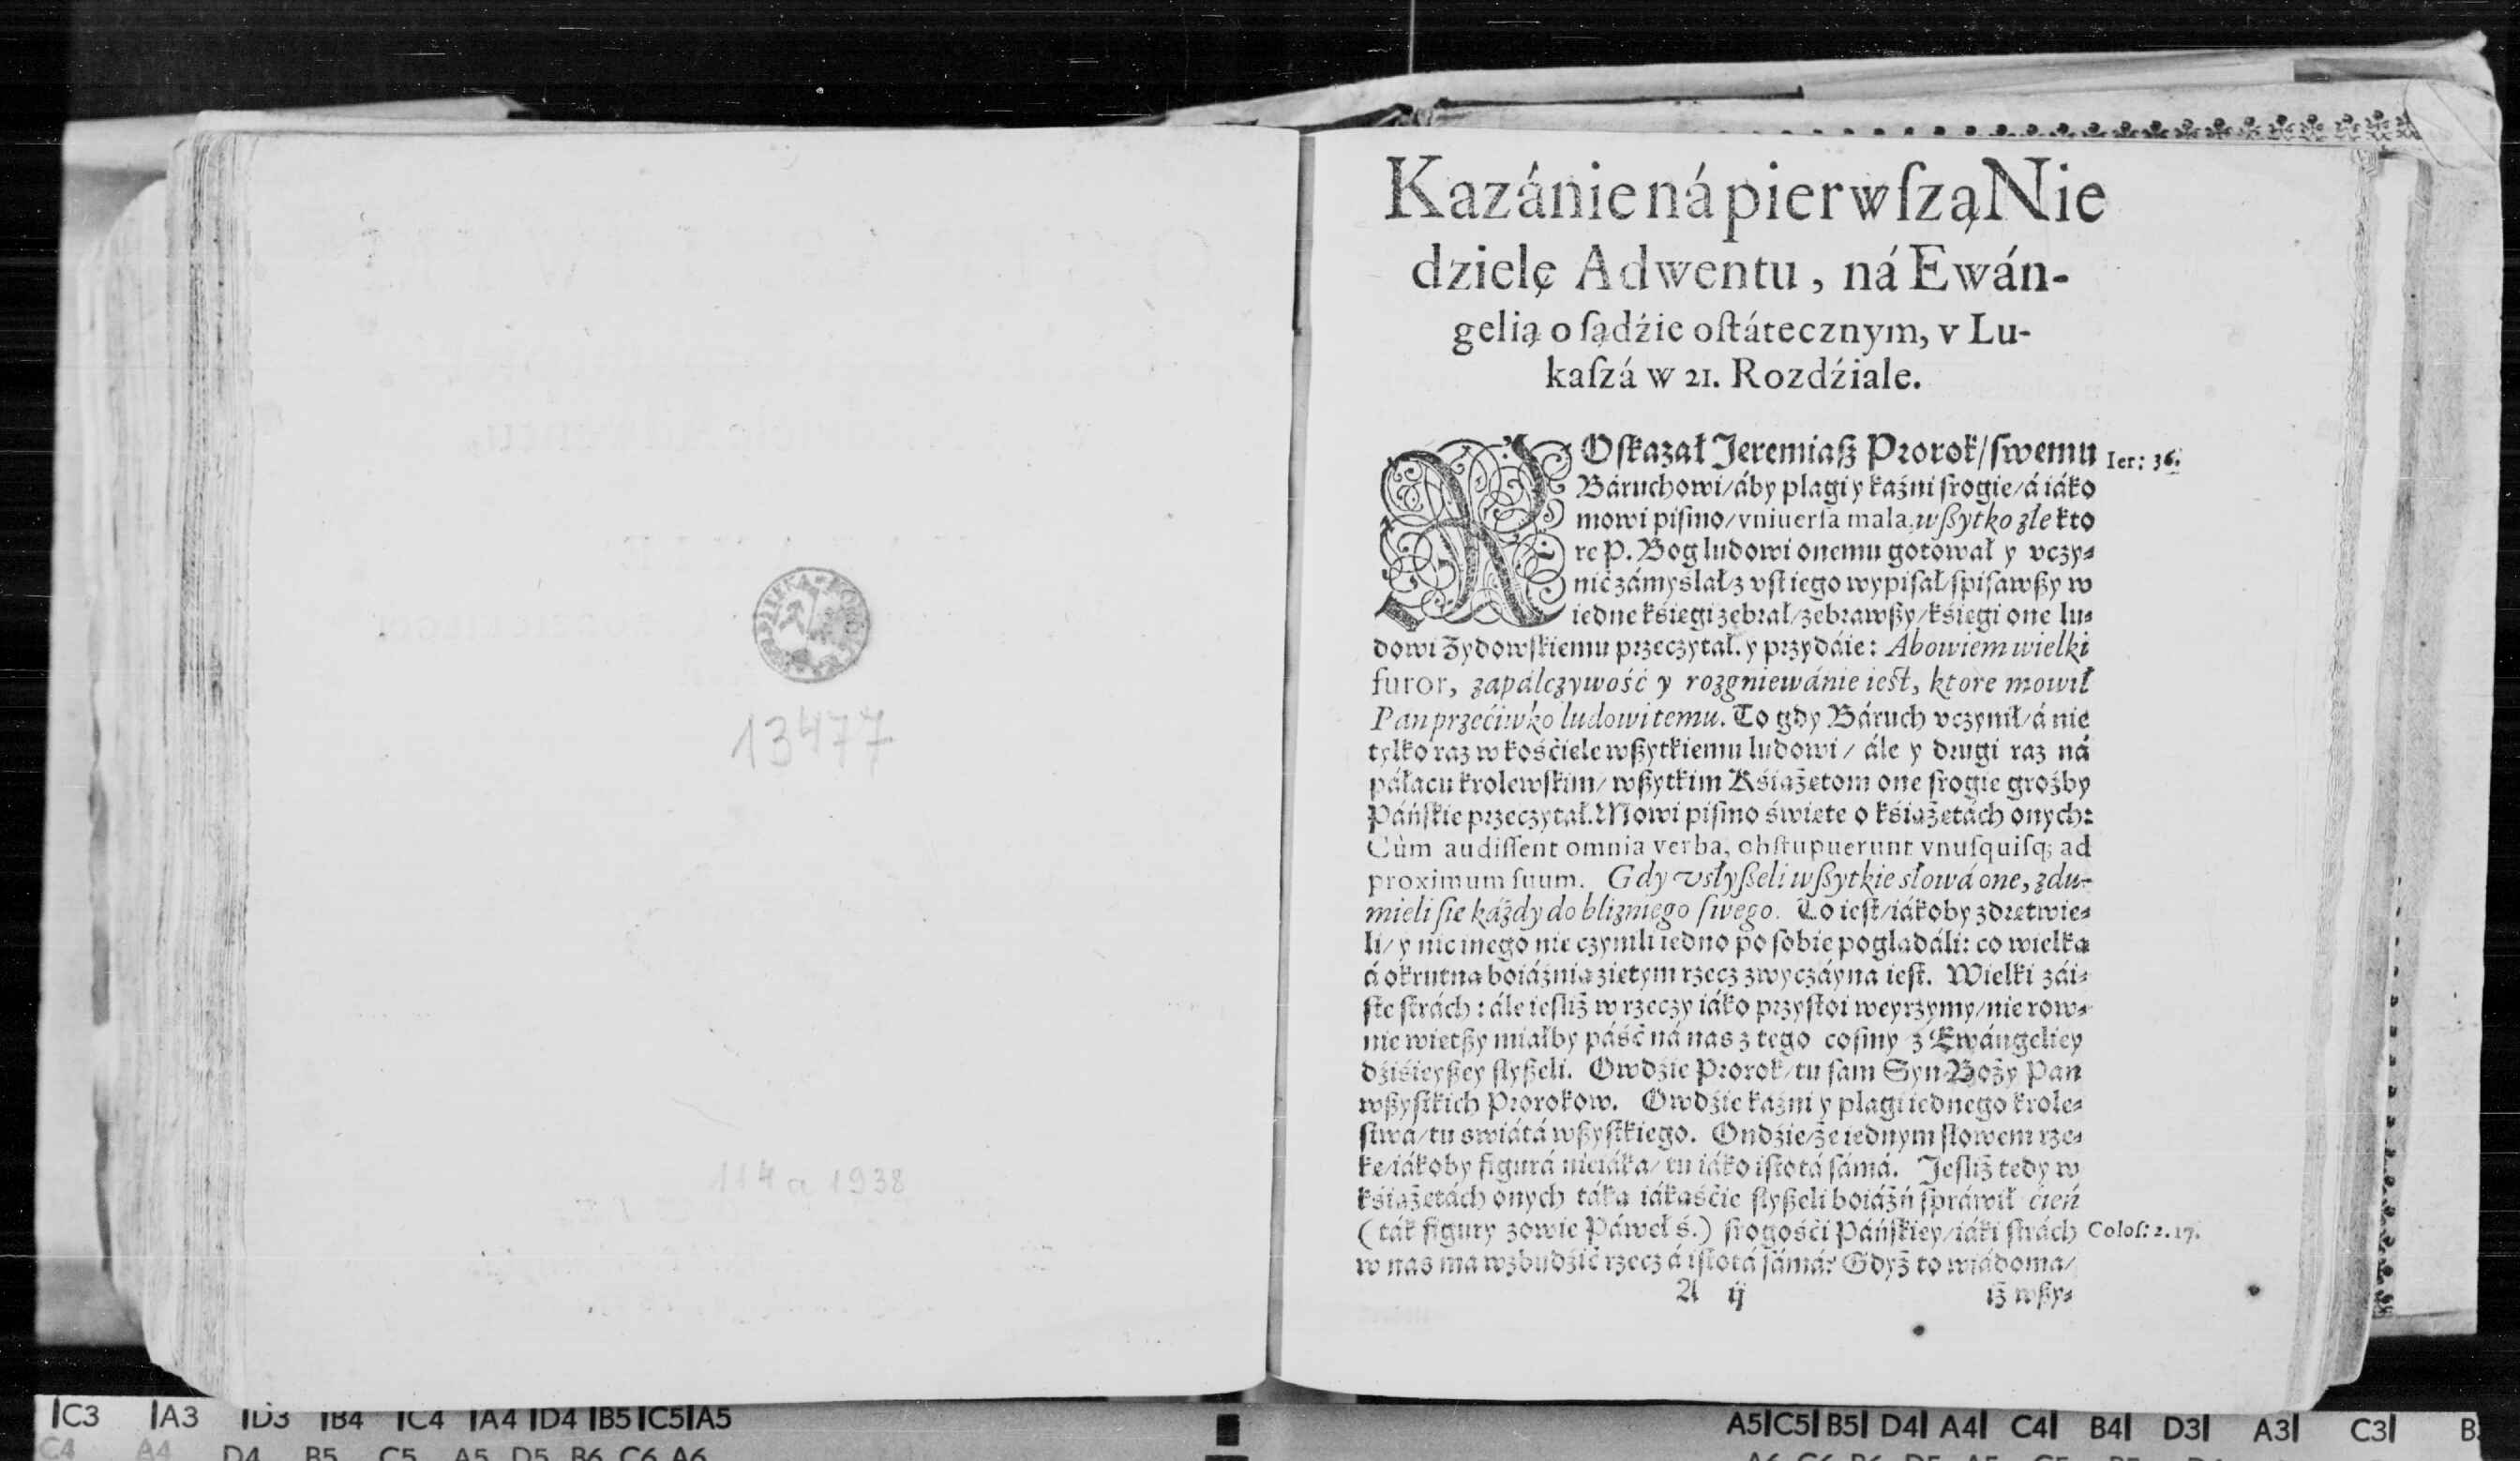 13477
114 a 1938
Kazánie ná pierwſzą Nie
dzielę Adwentu, ná Ewán-
gelią o ſądźie oſtátecznym, v Lu-
kaſzá w 21. Rozdźiale.
ROſkazał Jeremiaß Prorok/ ſwemu
Ier: 36.
Báruchowi/ áby plagi y kaźni ſrogie/ á iáko
mowi piſmo/ vniuerſa mala, wßytko złe kto
re P. Bog ludowi onemu gotował y vczy-
nić zámyślał/ z vſt iego wypiſał/ ſpiſawßy w
iedne kśięgi zebrał/ zebrawßy/ kśięgi one lu-
dowi Żydowſkiemu przeczytał. y przydáie: Abowiem wielki
furor, zapálczywość y rozgniewánie ieſt, ktore mowił
Pan przećiwko ludowi temu. To gdy Báruch vczynił/ á nie
tylko raz w kośćiele wßytkiemu ludowi/ ále y drugi raz ná
páłacu krolewſkim/ wßytkim Kśiążętom one ſrogie groźby
Páńſkie przeczytał. Mowi piſmo święte o kśiążętách onych:
Cùm audiſſent omnia verba, obſtupuerunt vnuſquiſq; ad
proximum ſuum. Gdy vsłyßeli wßytkie słowá one, zdu-
mieli ſie káżdy do bliźniego ſwego. To ieſt/ iákoby zdrętwie-
li/ y nic inego nie czynili iedno po ſobie poglądáli: co wielką
á okrutną boiáźnią ziętym rzecz zwyczáyna ieſt. Wielki zái-
ſte ſtrách: ále ieſliż w rzeczy iáko przyſtoi weyrzymy/ nie row-
nie więtßy miałby páść ná nas z tego coſmy z Ewángeliey
dźiśieyßey ſłyßeli. Owdźie Prorok/ tu ſam Syn Boży Pan
wßyſtkich Prorokow. Owdźie kaźni y plagi iednego krole-
ſtwa/ tu świátá wßyſtkiego. Ondźie/ że iednym ſłowem rze-
kę/ iákoby figurá nieiáka/ tu iáko iſtotá ſámá. Jeſliż tedy w
kśiążętách onych táką iákąśćie ſłyßeli boiáźń ſpráwił ćień
(ták figury zowie Páweł ś.) ſrogośći Páńſkiey/ iáki ſtrách
Coloſ: 2. 17.
w nas ma wzbudźić rzecz á iſtotá ſámá? Gdyż to wiádoma/
A ij
iż wßy-
C3 A3 D3 B4 C4 A4 D4 B5 C5 A5
A5 C5 B5 D4 A4 C4 B4 D3 A3 C3 B
C4 A4 D4 B5 C5 A5 D5 B6 C6 A6